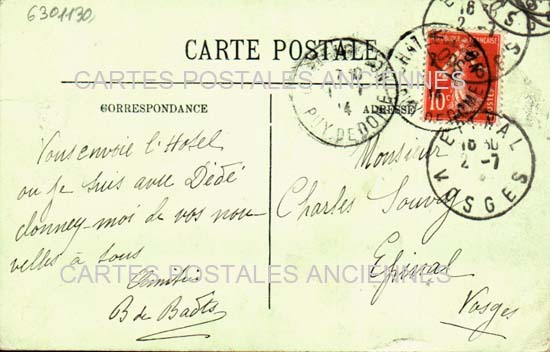 6301130,
CARTE POSTALE
CARTES POSTALES ANCIENNES
CORRESPONDANCE
ADRESSE
PUY-DE-DOME
10c
EPINAL
16 30
2-7
VOSGES
Vous envoie l'Hotel
ou je suis avec Dédé
donnez-moi de vos nou-
velles à tous
Amitiés
B de
Monsieur
Charles
Epinal
Vosges
CARTES POSTALES ANCIENNES